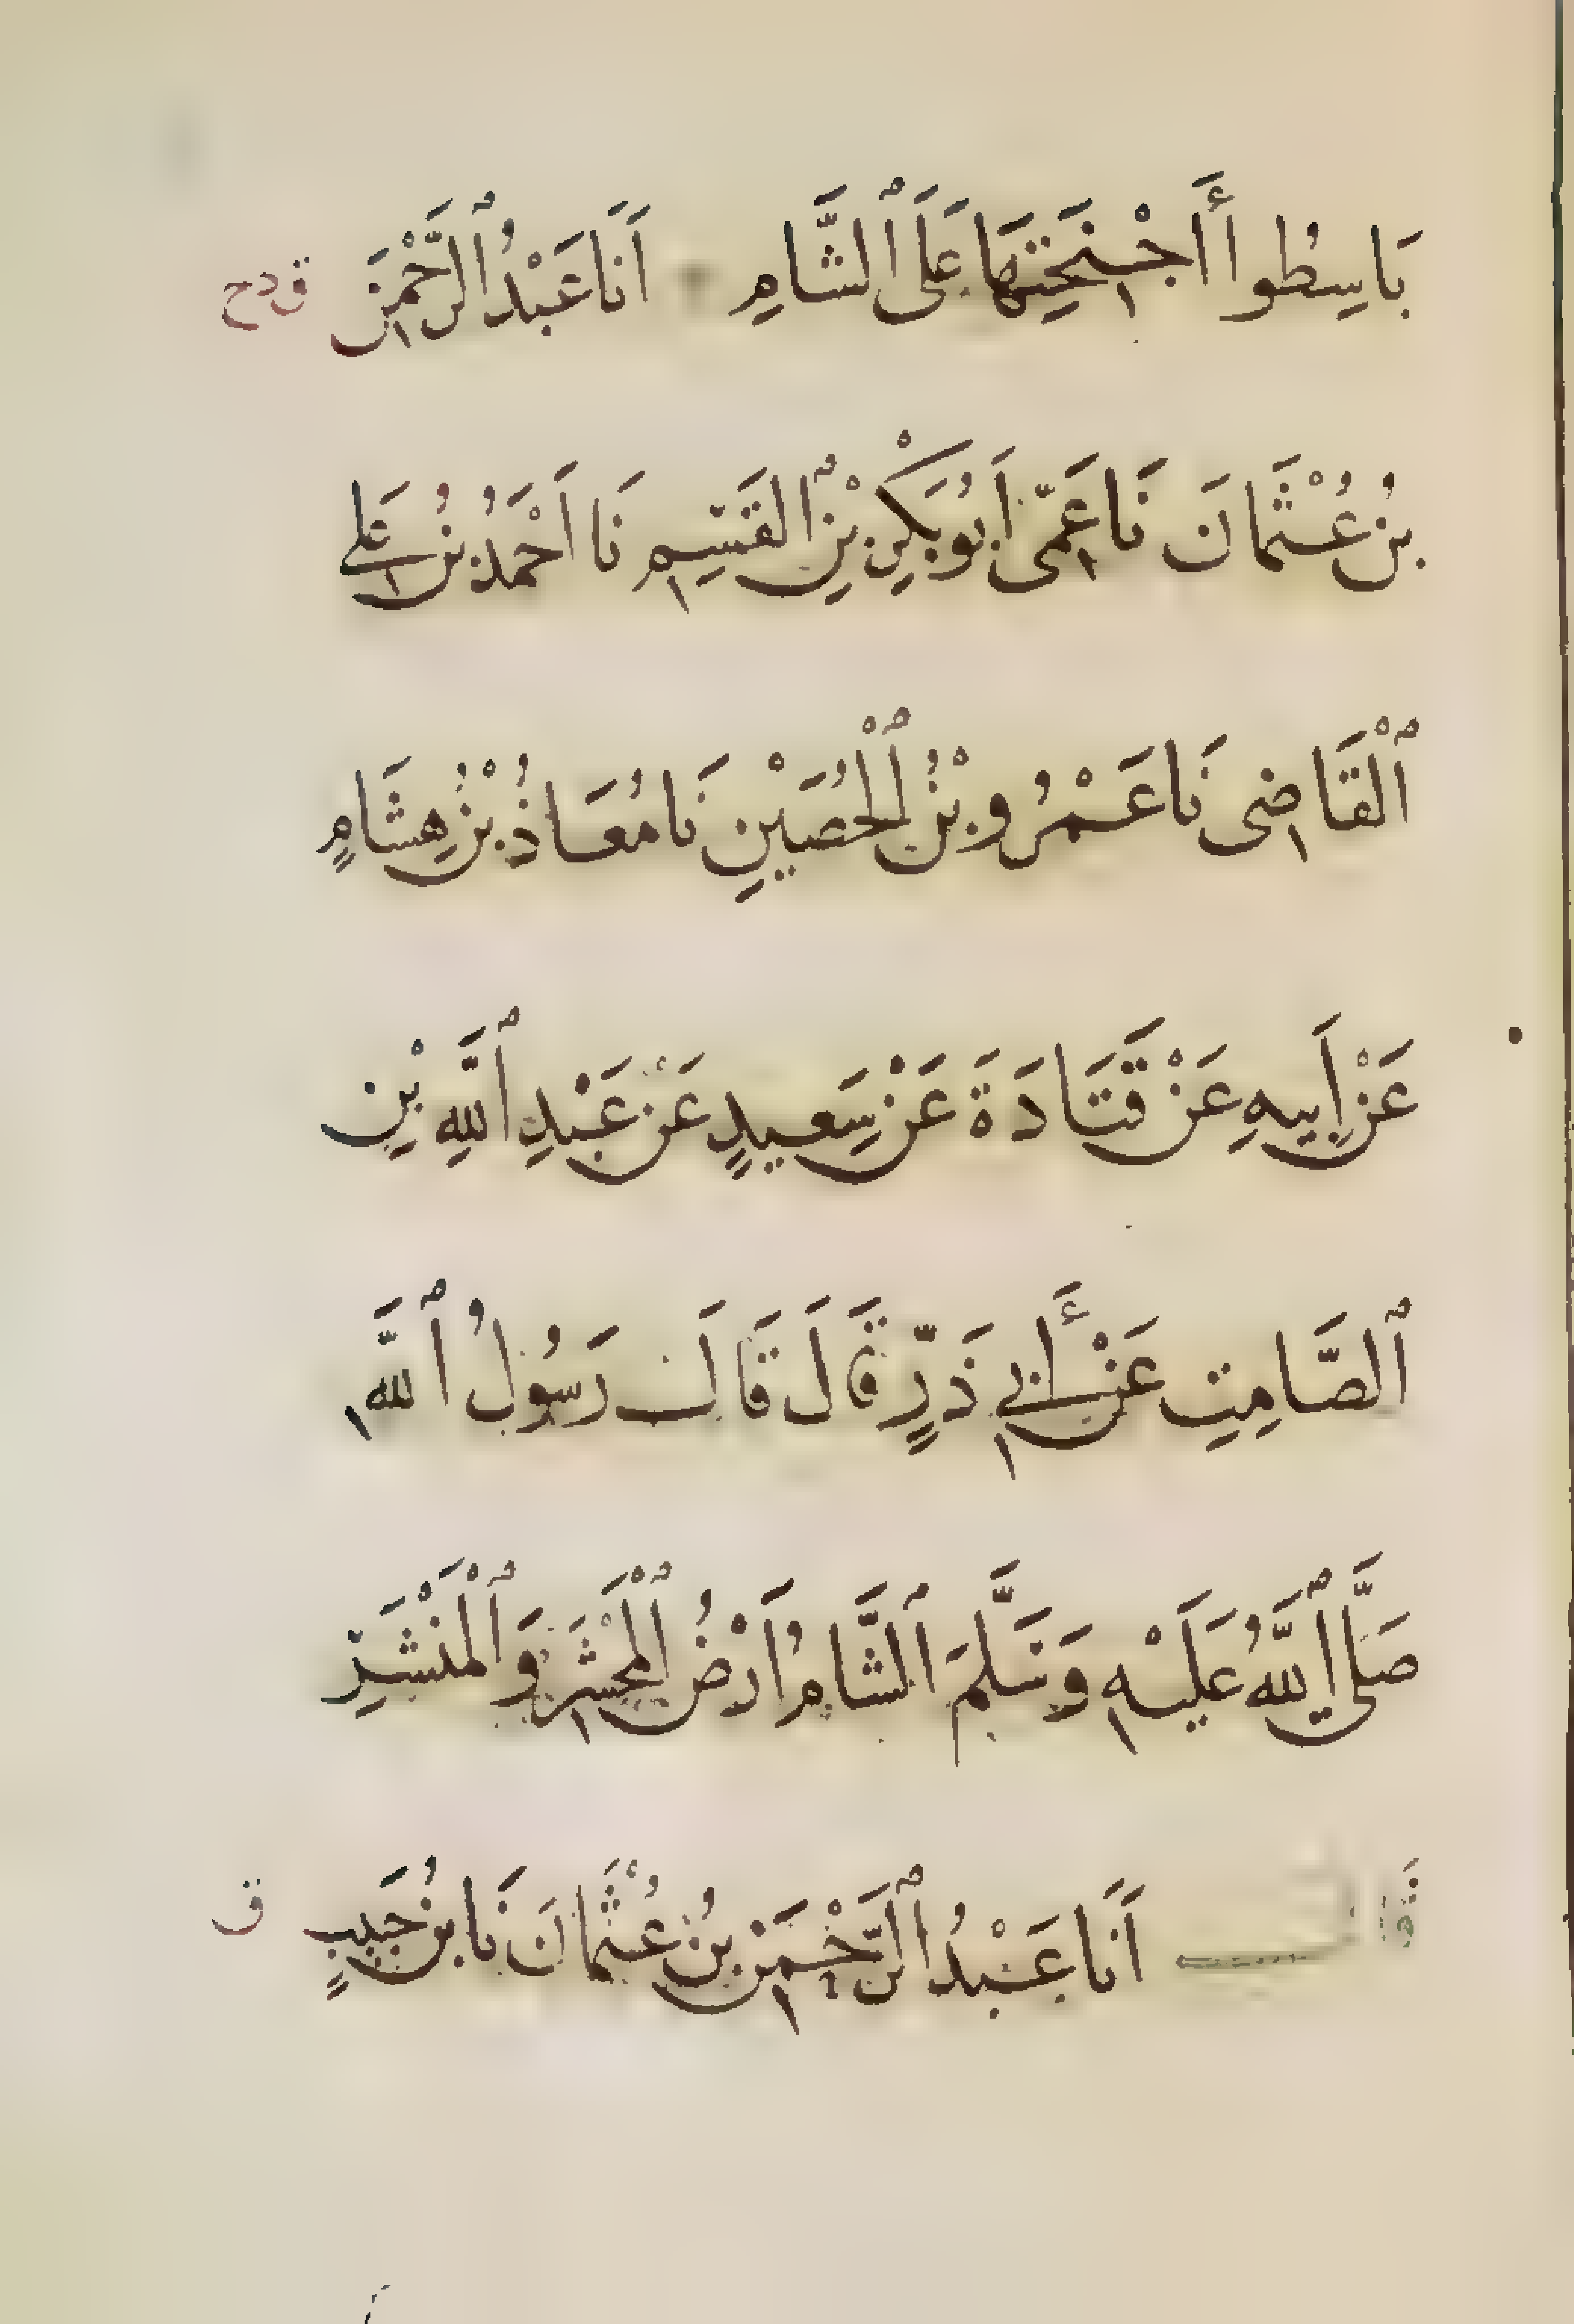 بَاسِطُوا أَجْنِحَتِهَا عَلَى ٱلشَّامِ اَنَا عَبْدُ ٱلرَّحْمٰنِ ق د ح
بْنُ عُثْمَانَ نَا عَمِّى اَبُو بَكْرِ بْنِ ٱلقَسِمِ نَا اَحْمَدُ بْنُ عَلِى
ٱلْقَاضِى نَا عَمْرُو بْنُ ٱلْحُصَيْنِ نَا مُعَاذُ بْنُ هِشَامٍ
عَنْ اَبِيهِ عَنْ قَتَادَةَ عَنْ سَعِيدٍ عَنْ عَبْدِ ٱللَّهِ بْنِ
ٱلصَّامِتِ عَنْ أَبِي ذَرٍّ قَالَ قَالَ رَسُولُ ٱللَّه
صَلَّى ٱللَّهُ عَلَيْهِ وَسَلَّمَ ٱلشَّامُ اَرْضُ ٱلْمَحْشَرِ وَٱلْمَنْشَرِ
قَالَ اَنَا عَبْدُ ٱلرَّحْمَنِ بْنُ عُثْمَانَ نَا ابْنُ حَبِيبٍ ق